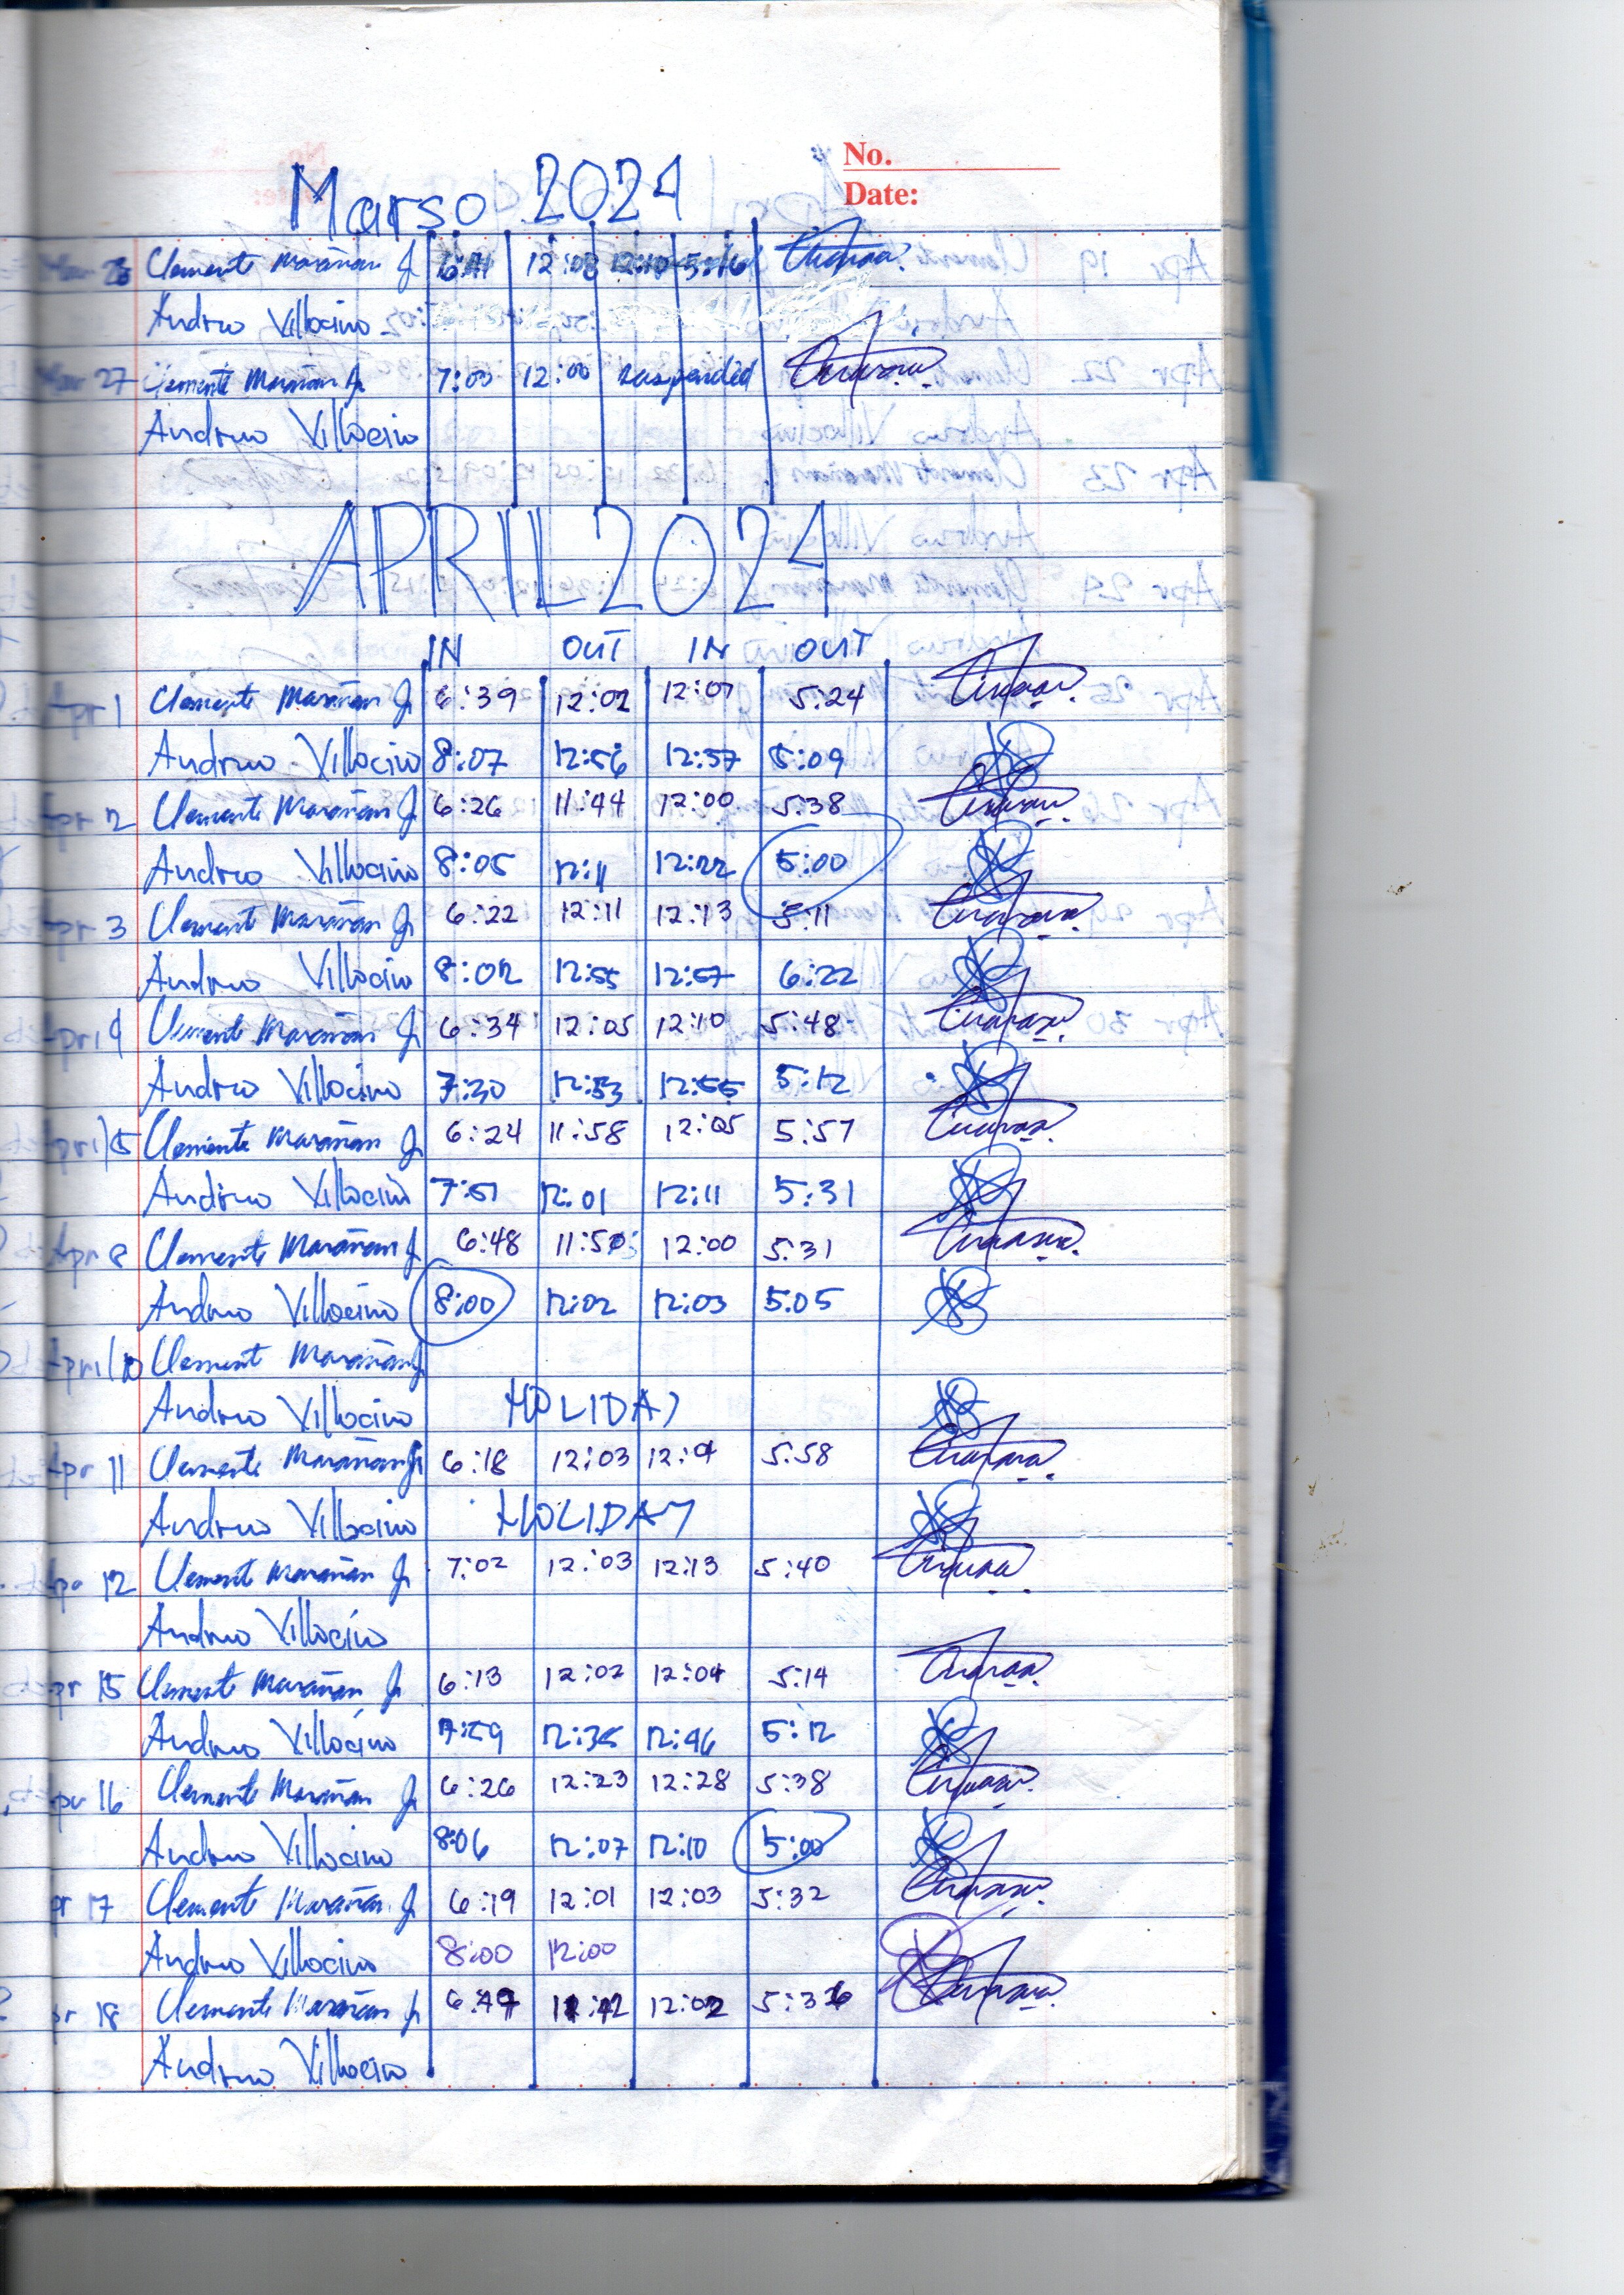 No.
Date:
Marso 2024
Mar 26 Clemente Marañan Jr 12:03 12:10 5:16
Andrew Villocino
Mar 27 Clemente Marañan Jr 7:00 12:00 suspended
Andrew Villocino
APRIL 2024
IN OUT IN OUT
Apr 1 Clemente Marañan Jr 6:39 12:02 12:07 5:24
Andrew Villocino 8:07 12:56 12:57 5:09
Apr 2 Clemente Marañan Jr 6:26 11:44 12:00 5:38
Andrew Villocino 8:05 12:11 12:22 5:00
Apr 3 Clemente Marañan Jr 6:22 12:11 12:13 5:11
Andrew Villocino 8:02 12:55 12:57 6:22
Apr 4 Clemente Marañan Jr 6:34 12:05 12:10 5:48
Andrew Villocino 7:30 12:53 12:55 5:12
April 5 Clemente Marañan Jr 6:24 11:58 12:05 5:57
Andrew Villocino 7:51 12:01 12:11 5:31
Apr 8 Clemente Marañan Jr 6:48 12:00 5:31
Andrew Villocino 8:00 12:02 12:03 5:05
April 10 Clement Marañan Jr
Andrew Villocino HOLIDAY
Apr 11 Clemente Marañan Jr 6:18 12:03 5:58
Andrew Villocino HOLIDAY
Apr 12 Clement Marañan Jr 7:02 12:03 12:13 5:40
Andrew Villocino
Apr 15 Clement Marañan Jr 6:13 12:02 12:04 5:14
Andrew Villocino 7:59 12:35 12:46 5:12
Apr 16 Clemente Marañan Jr 6:26 12:23 12:28 5:38
Andrew Villocino 8:06 12:07 12:10 5:00
pr 17 Clemente Marañan Jr 6:19 12:01 12:03 5:32
Andrew Villocino 8:00 12:00
pr 18 Clemente Marañan Jr 12:02 5:36
Andrew Villocino